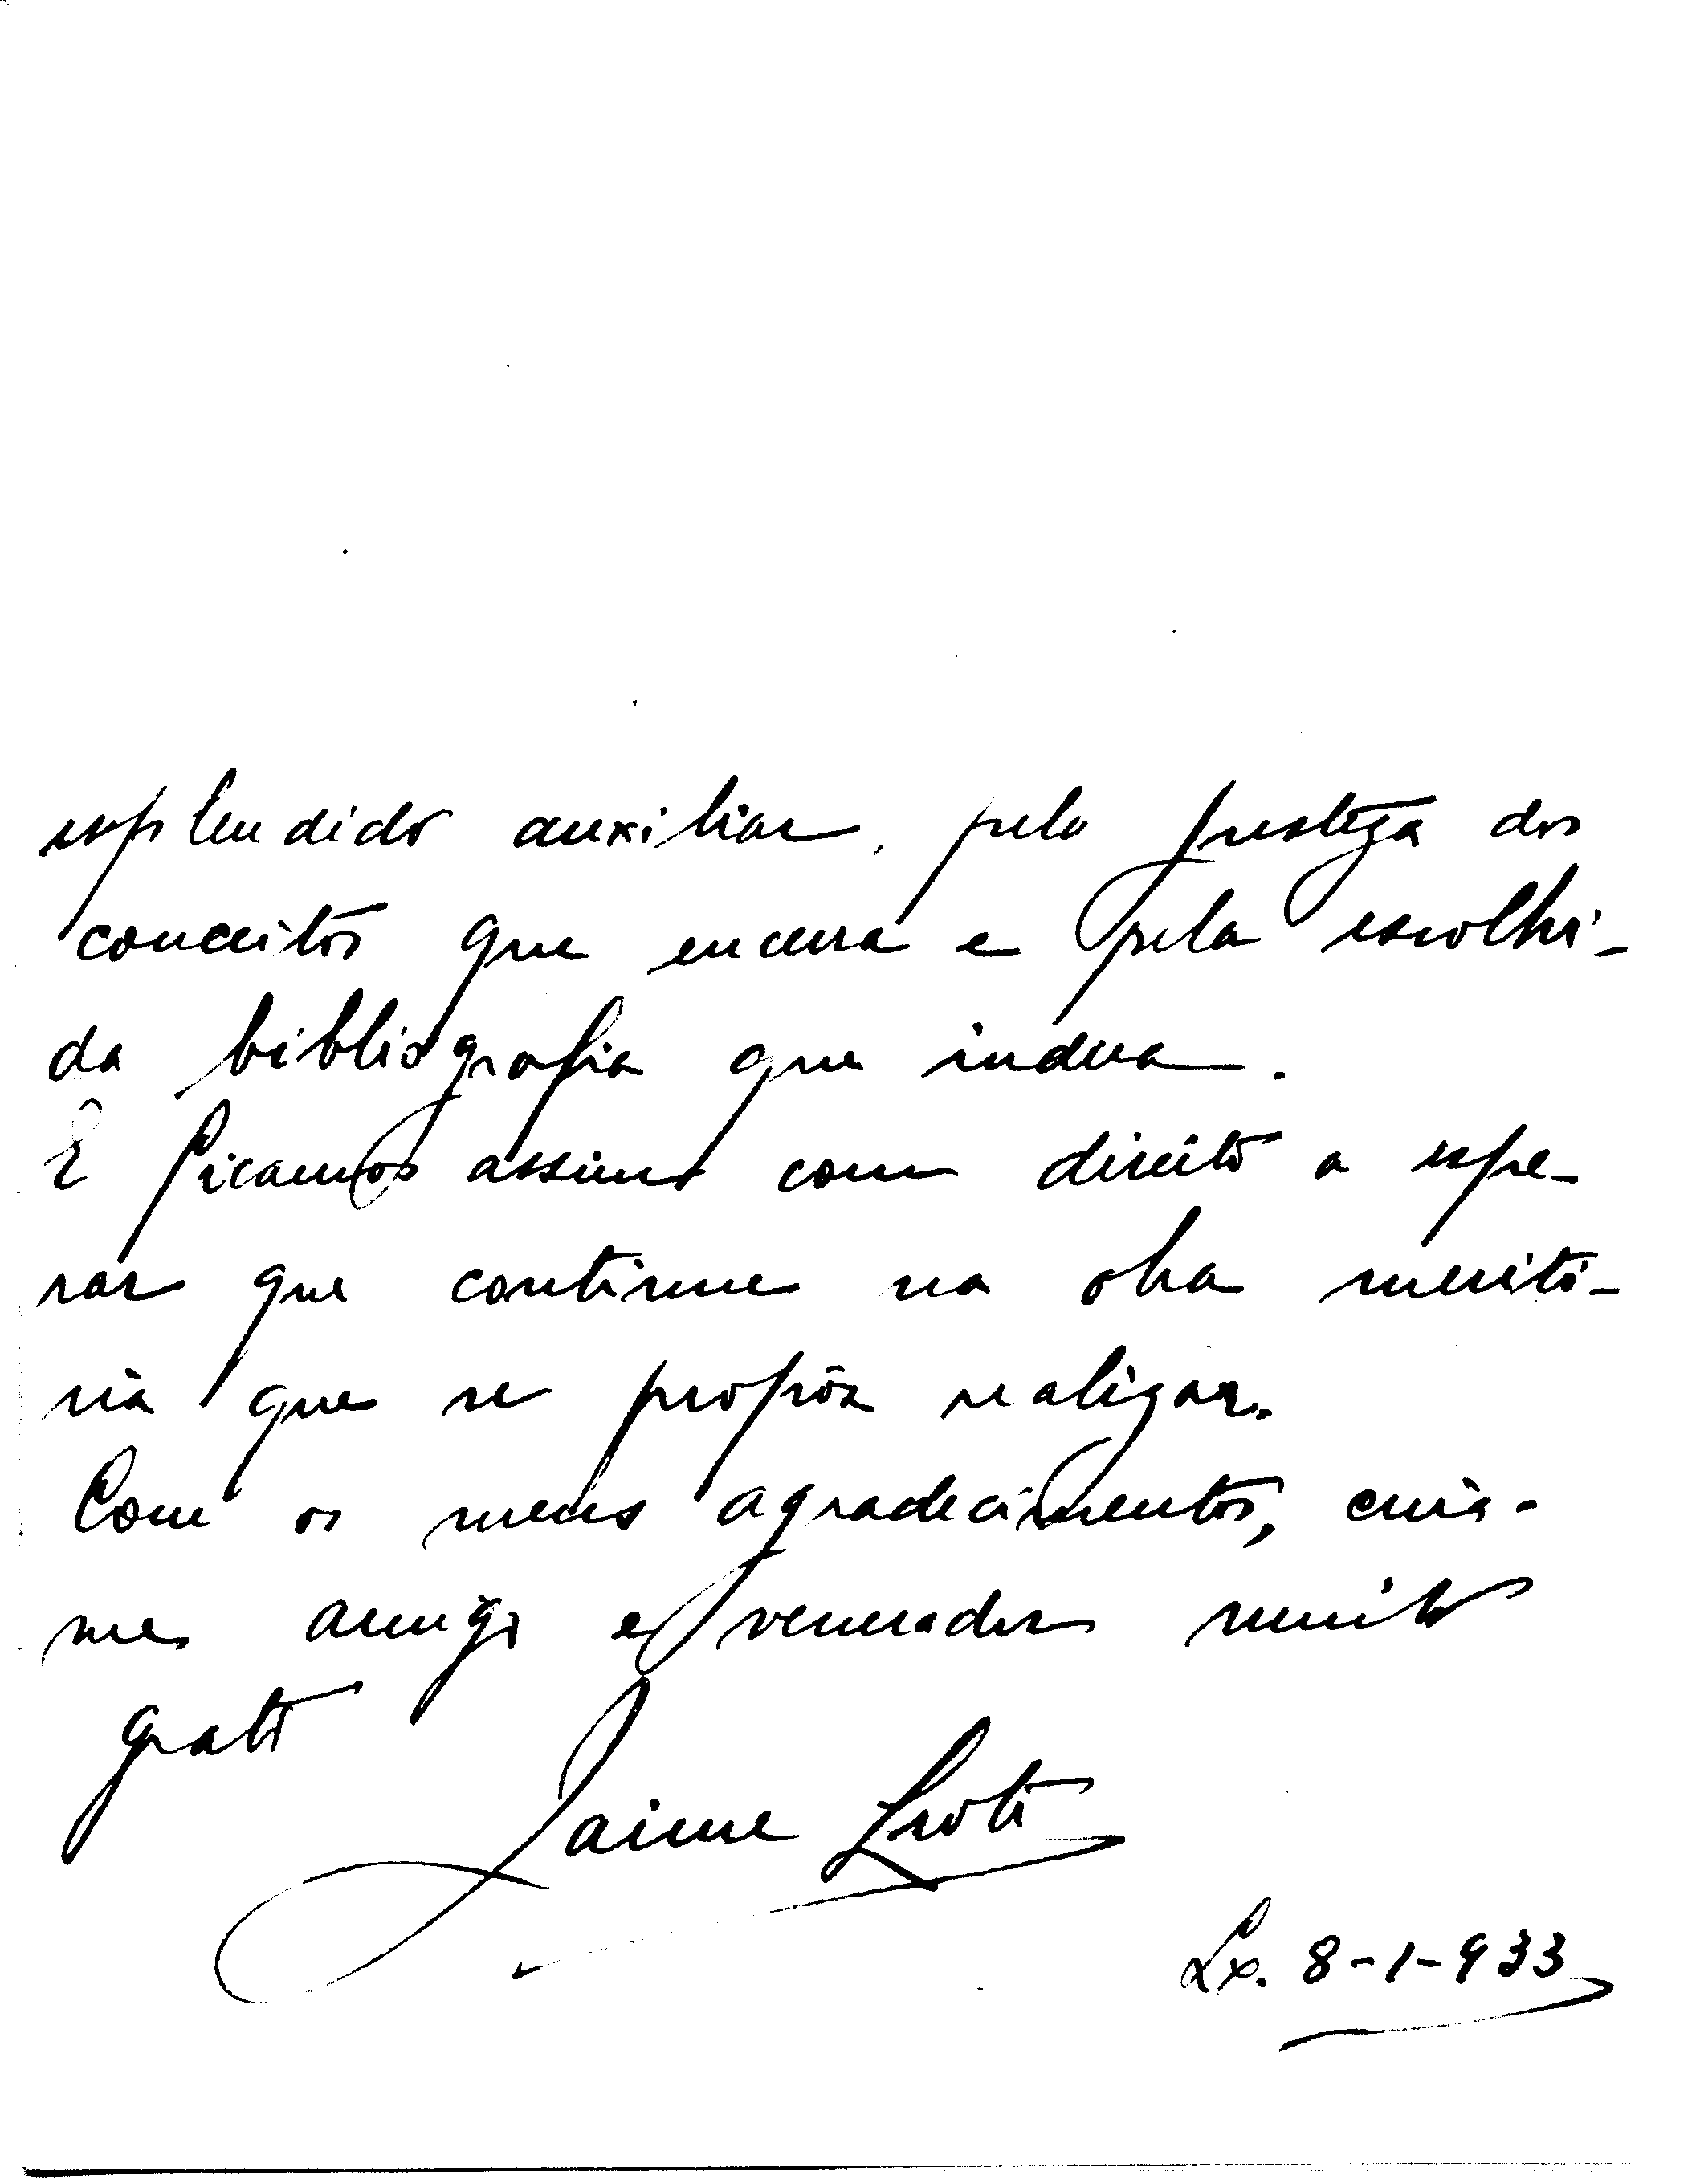 esplendido auxiliar, pela justeza dos
conceitos que encerra e pela escolhi-
da bibliografia que
E ficamos assim com direito a espe-
rar que continue na obra meritó-
ria que se propôz realizar.
Com os meus agradecimentos, creia-
me, amigo e venerador muito
grato
Jaime
Lx. 8-1-933